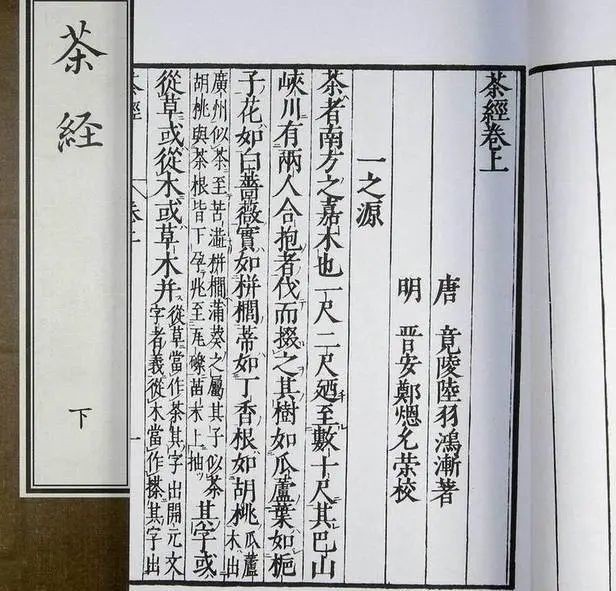 茶經卷上
唐 竟陵陸羽鴻漸著
明 晉安鄭熜允榮校
一之源
茶者南方之嘉木也一尺二尺廼至數十尺其巴山
峽川有兩人合抱者伐而掇之其樹如瓜蘆葉如梔
子花如白薔薇實如栟櫚蒂如丁香根如胡桃瓜蘆木出
廣州似茶至苦澁栟櫚蒲葵之屬其子似茶
胡桃與茶根皆下孕兆至瓦礫苗木上抽
其字或
從草或從木或草木并
從草當作茶其字出開元文
字者義從木當作搽其字出
茶經
卷上
一
茶経
下